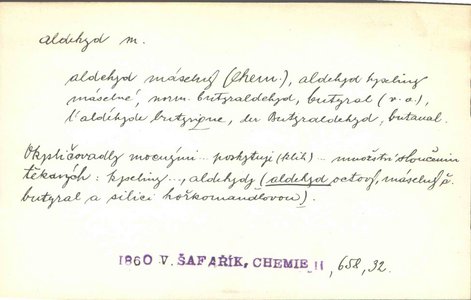 aldehyd m.
aldehyd máselný (Chem.), aldehyd kyseliny
máselné, norm. butyraldehyd, butyral (v. o.),
l'aldéhyde butyrique, der Butyraldehyd, butanal.
Okysličovadly mocnými... poskytují (klih)... množství sloučenin
těkavých: kyseliny ..., aldehydy (aldehyd octový, máselný č.
butyral a silici hořkomandlovou).
1860 V. ŠAFAŘÍK, CHEMIE II, 658, 32.